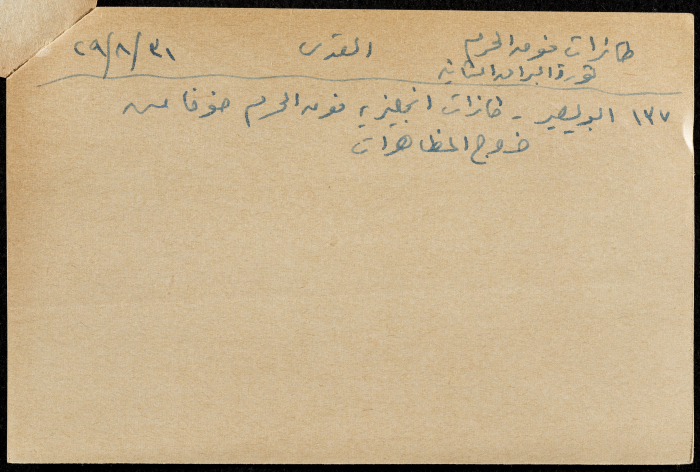 طائرات فوق الحرم القدس ٢٩/٨/٣١
ثورة البراق الثانية
١٣٧ البوليس - طائرات انجليزية فوق الحرم خوفا من
خروج المظاهرات